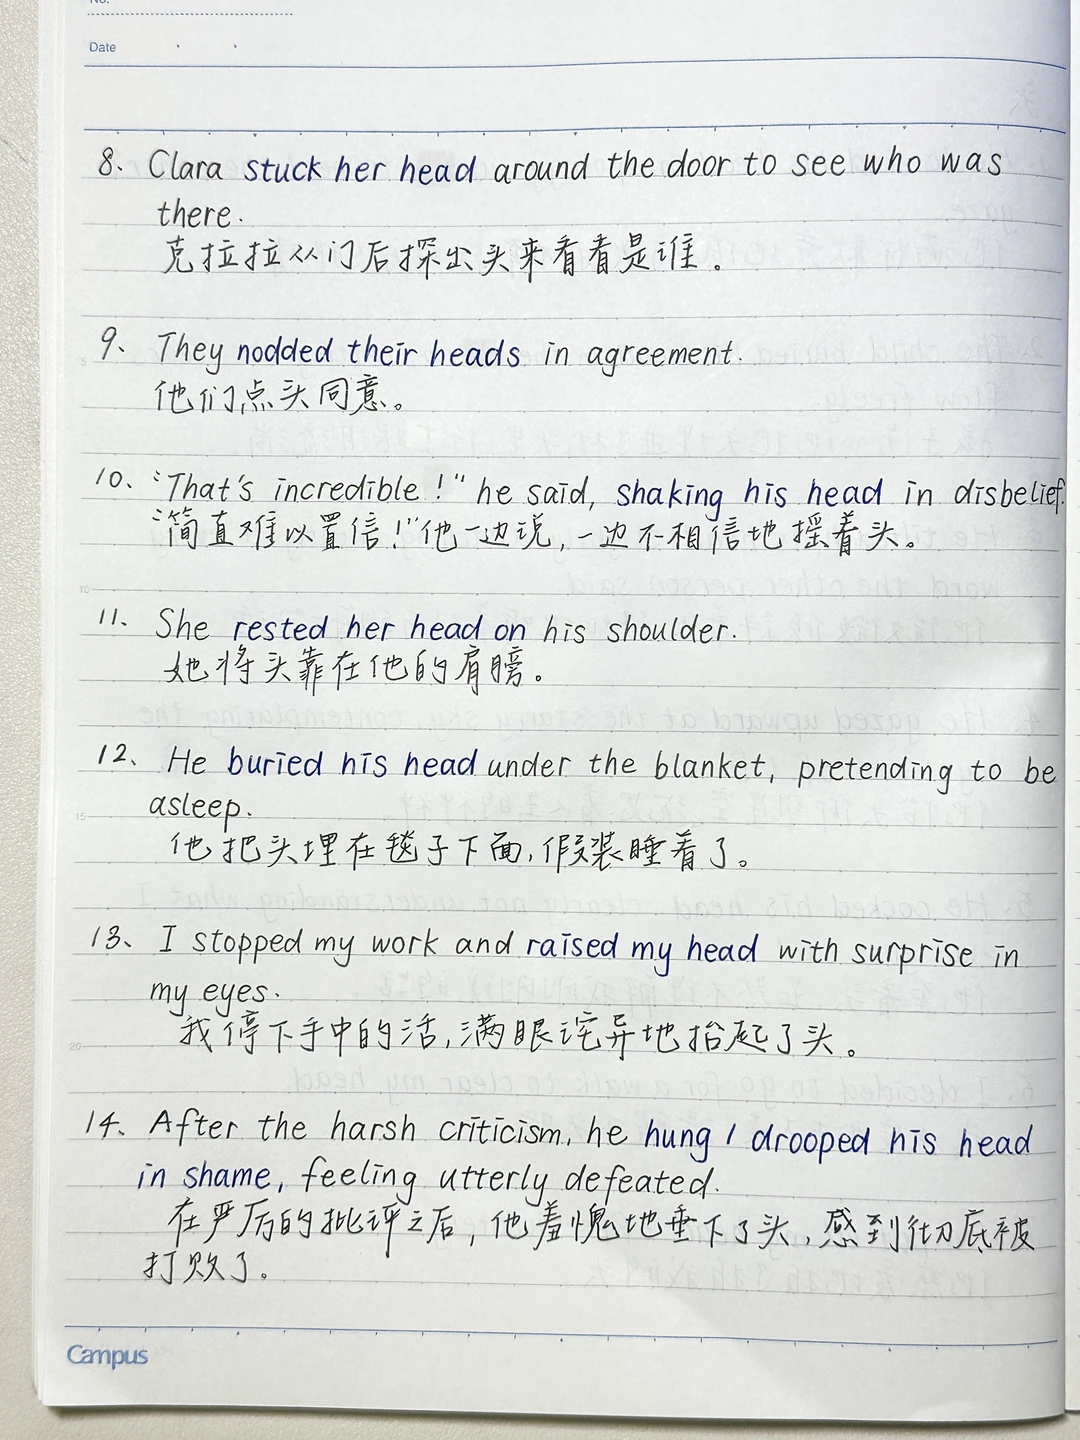 No.
Date
8、Clara stuck her head around the door to see who was
there.
克拉拉从门后探出头来看看是谁。
9、They nodded their heads in agreement.
他们点头同意。
10、"That's incredible!" he said, shaking his head in disbelief.
"简直难以置信!"他一边说,一边不相信地摇着头。
11、She rested her head on his shoulder.
她将头靠在他的肩膀。
12、He buried his head under the blanket, pretending to be
asleep.
他把头埋在毯子下面,假装睡着了。
13、I stopped my work and raised my head with surprise in
my eyes.
我停下手中的活,满眼诧异地抬起了头。
14、After the harsh criticism, he hung / drooped his head
in shame, feeling utterly defeated.
在严厉的批评之后,他羞愧地垂下了头,感到彻底被
打败了。
Campus